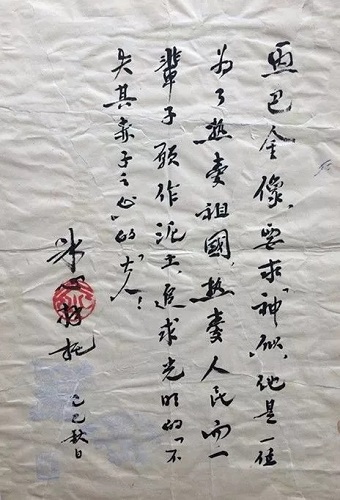 画巴金像,要求"神似",他是一位
为了热爱祖國,热爱人民而一
輩子願作泥土、追求光明的"不
失其赤子之心"的"大人"!
冰心拜托
己巳秋日